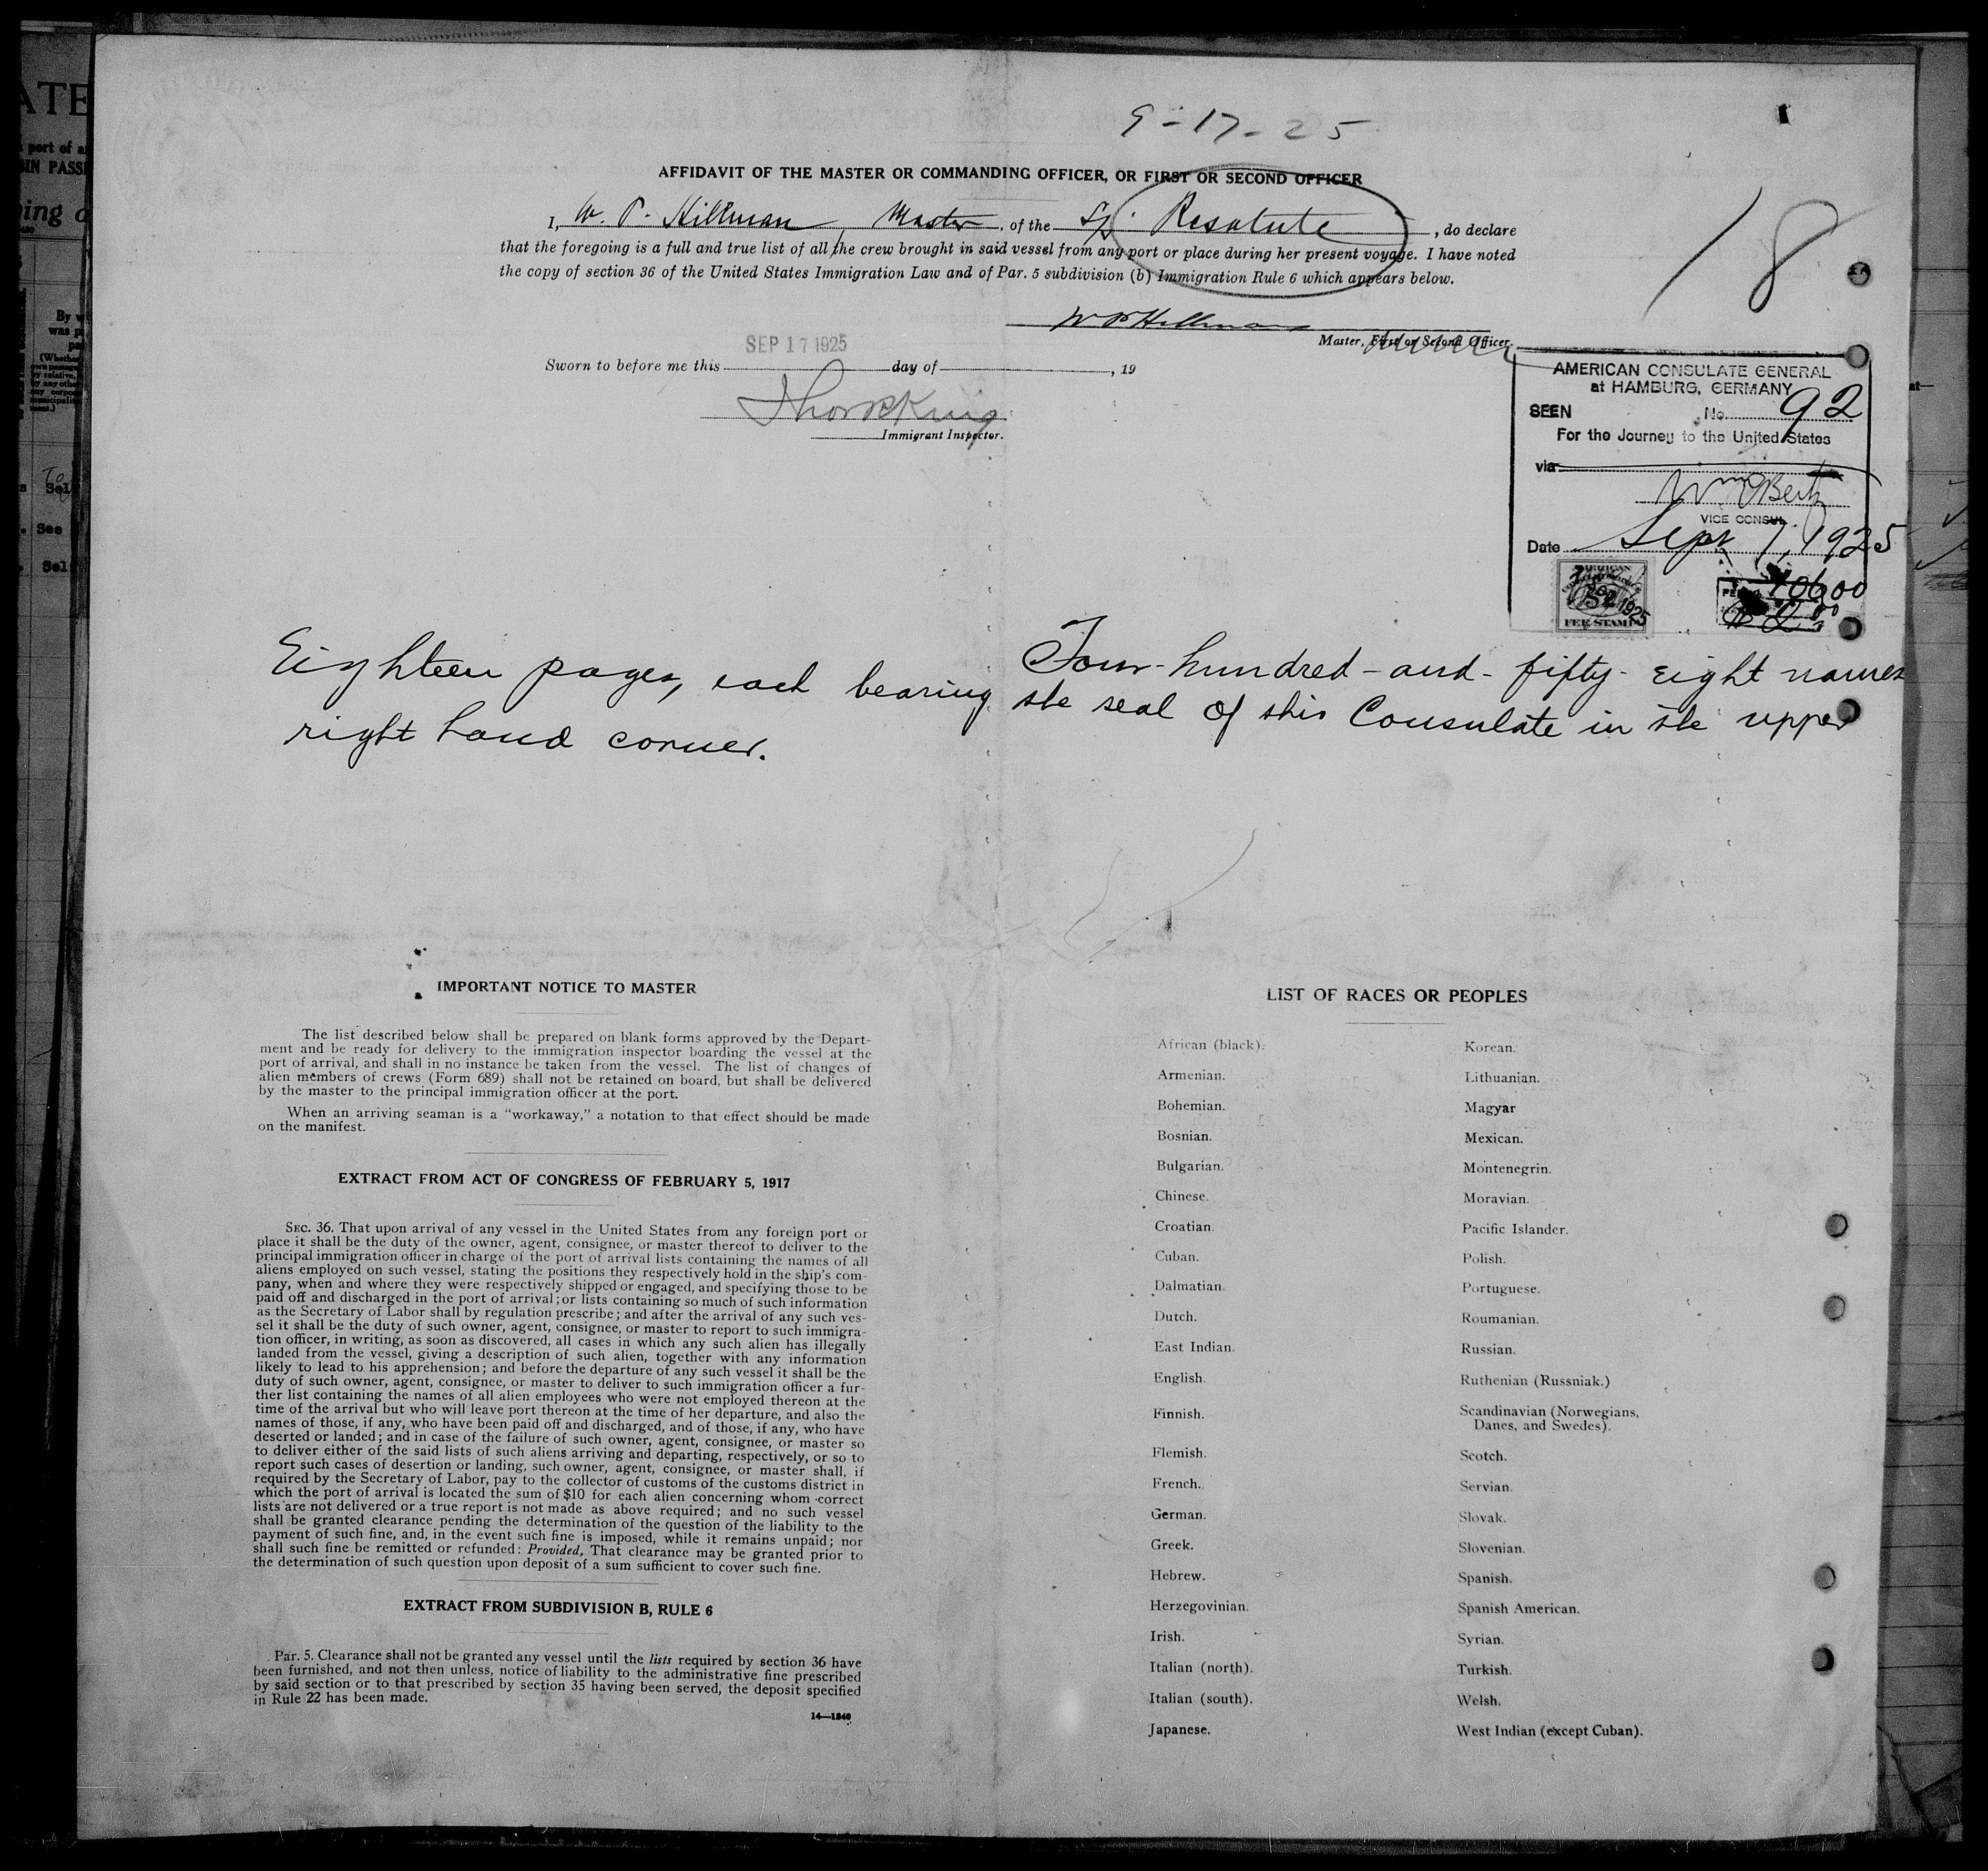 9-17-25
AFFIDAVIT OF THE MASTER OR COMMANDING OFFICER, OR FIRST OR SECOND OFFICER
I, W. P. Hillman, Master, of the Resolute, do declare
that the foregoing is a full and true list of all the crew brought in said vessel from any port or place during her present voyage. I have noted
the copy of section 36 of the United States Immigration Law and of Par. 5 subdivision (b) Immigration Rule 6 which appears below.
18
Master, First or Second Officer.
SEP 17 1925
Sworn to before me this day of , 19
Immigrant Inspector.
AMERICAN CONSULATE GENERAL
at HAMBURG, GERMANY
SEEN No. 92
For the Journey to the United States
via
VICE CONSUL.
Date Sept 7, 1925
FEE STAMP
Four-hundred-and-fifty-eight names
Eighteen pages, each bearing the seal of this Consulate in the upper
right hand corner.
IMPORTANT NOTICE TO MASTER
The list described below shall be prepared on blank forms approved by the Depart-
ment and be ready for delivery to the immigration inspector boarding the vessel at the
port of arrival, and shall in no instance be taken from the vessel. The list of changes of
alien members of crews (Form 689) shall not be retained on board, but shall be delivered
by the master to the principal immigration officer at the port.
When an arriving seaman is a "workaway," a notation to that effect should be made
on the manifest.
EXTRACT FROM ACT OF CONGRESS OF FEBRUARY 5, 1917
SEC. 36. That upon arrival of any vessel in the United States from any foreign port or
place it shall be the duty of the owner, agent, consignee, or master thereof to deliver to the
principal immigration officer in charge of the port of arrival lists containing the names of all
aliens employed on such vessel, stating the positions they respectively hold in the ship's com-
pany, when and where they were respectively shipped or engaged, and specifying those to be
paid off and discharged in the port of arrival; or lists containing so much of such information
as the Secretary of Labor shall by regulation prescribe; and after the arrival of any such ves-
sel it shall be the duty of such owner, agent, consignee, or master to report to such immigra-
tion officer, in writing, as soon as discovered, all cases in which any such alien has illegally
landed from the vessel, giving a description of such alien, together with any information
likely to lead to his apprehension; and before the departure of any such vessel it shall be the
duty of such owner, agent, consignee, or master to deliver to such immigration officer a fur-
ther list containing the names of all alien employees who were not employed thereon at the
time of the arrival but who will leave port thereon at the time of her departure, and also the
names of those, if any, who have been paid off and discharged, and of those, if any, who have
deserted or landed; and in case of the failure of such owner, agent, consignee, or master so
to deliver either of the said lists of such aliens arriving and departing, respectively, or so to
report such cases of desertion or landing, such owner, agent, consignee, or master shall, if
required by the Secretary of Labor, pay to the collector of customs of the customs district in
which the port of arrival is located the sum of $10 for each alien concerning whom correct
lists are not delivered or a true report is not made as above required; and no such vessel
shall be granted clearance pending the determination of the question of the liability to the
payment of such fine, and, in the event such fine is imposed, while it remains unpaid; nor
shall such fine be remitted or refunded: Provided, That clearance may be granted prior to
the determination of such question upon deposit of a sum sufficient to cover such fine.
EXTRACT FROM SUBDIVISION B, RULE 6
Par. 5. Clearance shall not be granted any vessel until the lists required by section 36 have
been furnished, and not then unless, notice of liability to the administrative fine prescribed
by said section or to that prescribed by section 35 having been served, the deposit specified
in Rule 22 has been made.
14—1240
LIST OF RACES OR PEOPLES
African (black).
Armenian.
Bohemian.
Bosnian.
Bulgarian.
Chinese.
Croatian.
Cuban.
Dalmatian.
Dutch.
East Indian.
English.
Finnish.
Flemish.
French.
German.
Greek.
Hebrew.
Herzegovinian.
Irish.
Italian (north).
Italian (south).
Japanese.
Korean.
Lithuanian.
Magyar
Mexican.
Montenegrin.
Moravian.
Pacific Islander.
Polish.
Portuguese.
Roumanian.
Russian.
Ruthenian (Russniak.)
Scandinavian (Norwegians,
Danes, and Swedes).
Scotch.
Servian.
Slovak.
Slovenian.
Spanish.
Spanish American.
Syrian.
Turkish.
Welsh.
West Indian (except Cuban).